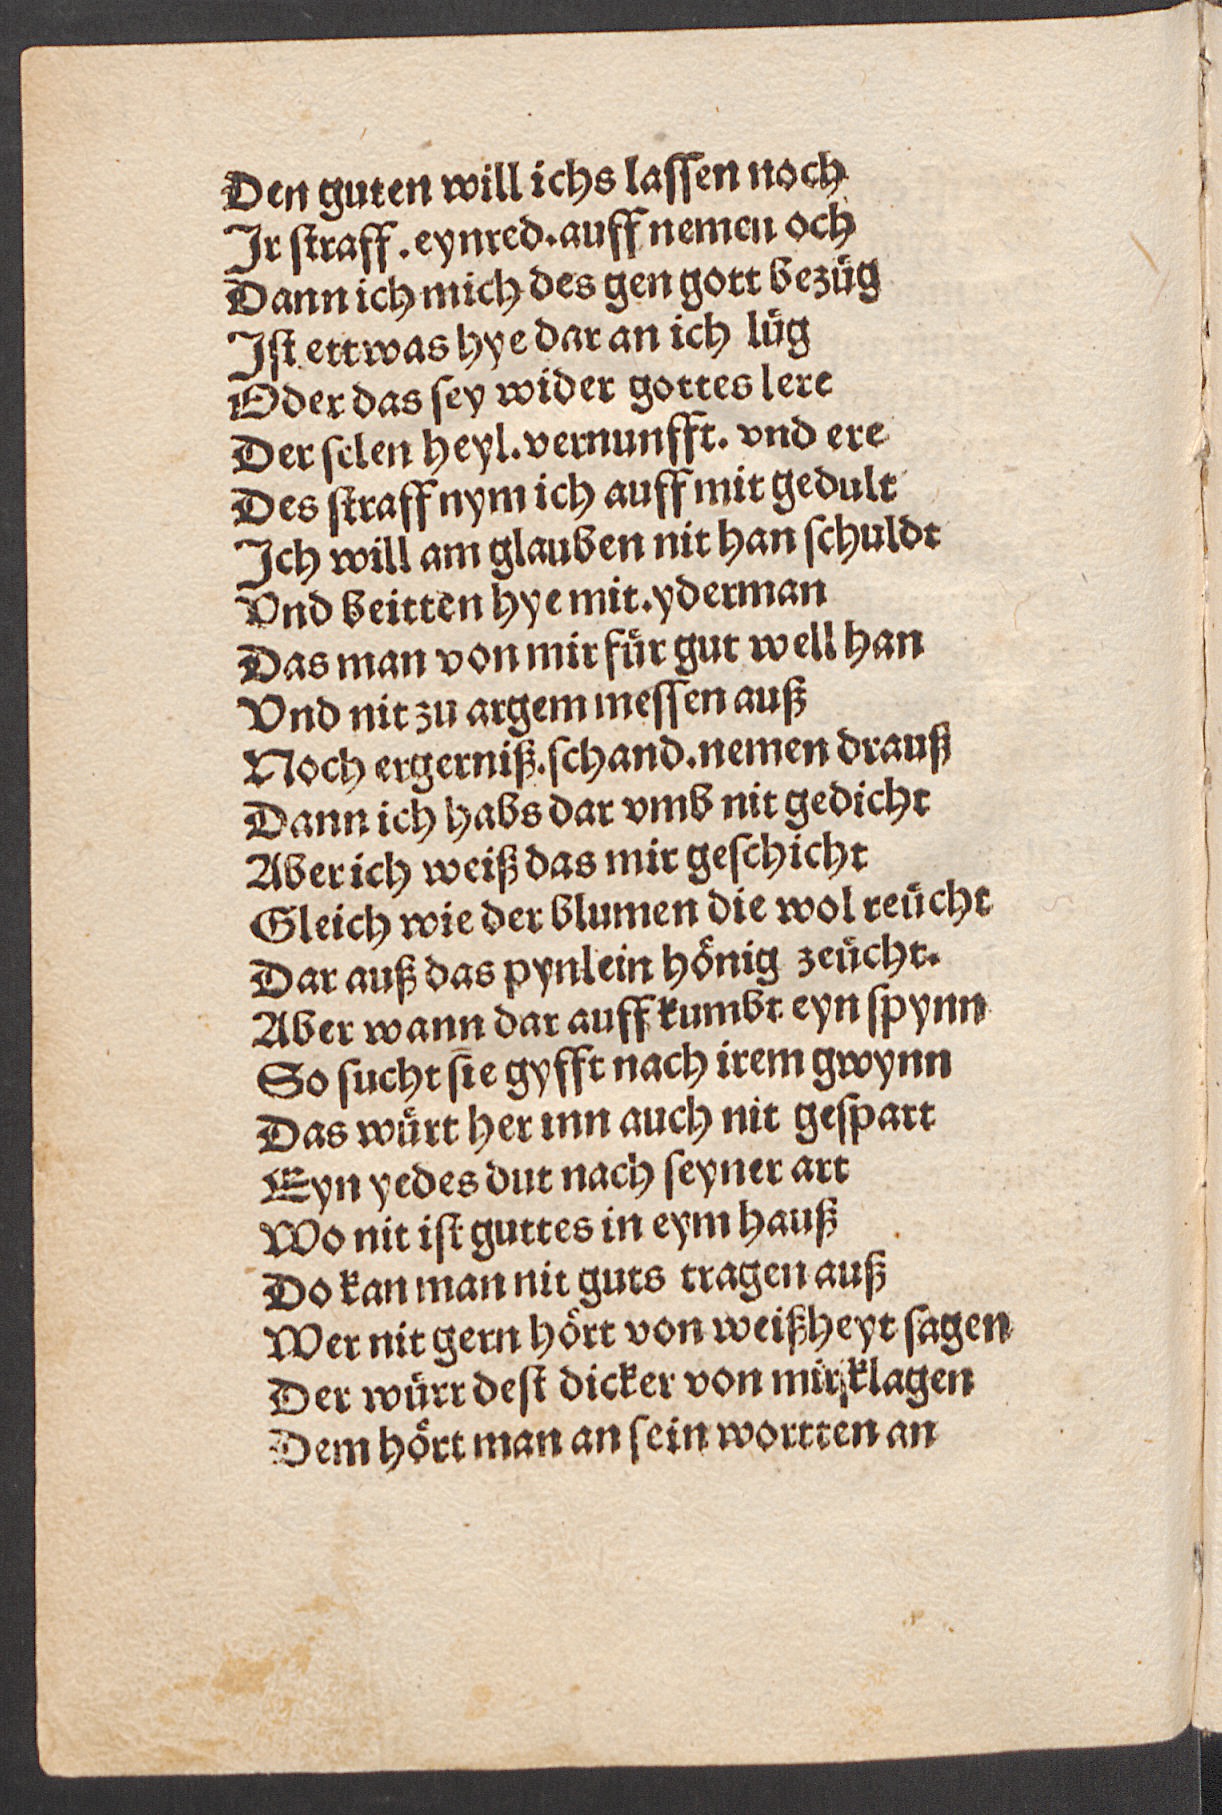 Den guten will ichs lassen noch
Jr straff. eynred. auff nemen och
Dann ich mich des gen gott bezüg
Jst ettwas hye dar an ich lüg
Oder das sey wider gottes lere
Der selen heyl. vernunfft. vnd ere
Des straff nym ich auff mit gedult
Jch will am glauben nit han schuldt
Vnd beitten hye mit. yderman
Das man von mir für gut well han
Vnd nit zu argem messen auß
Noch ergerniß. schand. nemen drauß
Dann ich habs dar vmb nit gedicht
Aber ich weiß das mir geschicht
Gleich wie der blumen die wol reücht
Dar auß das pynlein hönig zeücht.
Aber wann dar auff kumbt eyn spynn
So sucht sie gyfft nach irem gwynn
Das würt her inn auch nit gespart
Eyn yedes dut nach seyner art
Wo nit ist guttes in eym hauß
Do kan man nit guts tragen auß
Wer nit gern hört von weißheyt sagen
Der würr dest dicker von mir klagen
Dem hört man an sein wortten an